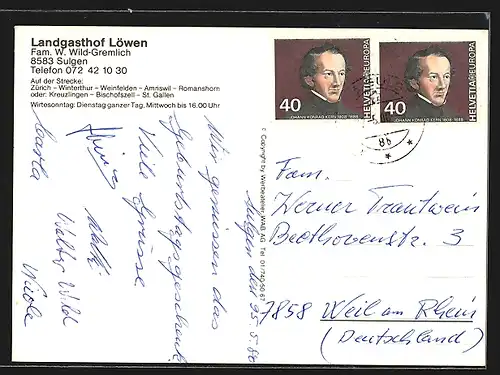 Landgasthof Löwen
Fam. W. Wild-Gremlich
8583 Sulgen
Telefon 072 42 10 30
Auf der Strecke:
Zürich – Winterthur – Weinfelden – Amriswil – Romanshorn
oder: Kreuzlingen – Bischofszell – St. Gallen
Wirtesonntag: Dienstag ganzer Tag, Mittwoch bis 16.00 Uhr
Sulgen den 25.5.80
Wir geniessen das
Geburtstagsgeschenk
Viele Grüsse
Walter Wild
Nicole
Carla
© Copyright by Werbeatelier WAB, AG Tel. 01/740 50 67
40
HELVETIA EUROPA
JOHANN KONRAD KERN 1808-1888
40
HELVETIA EUROPA
JOHANN KONRAD KERN 1808-1888
8b
Fam.
Werner Trautwein
Beethovenstr. 3
7858 Weil am Rhein
(Deutschland)